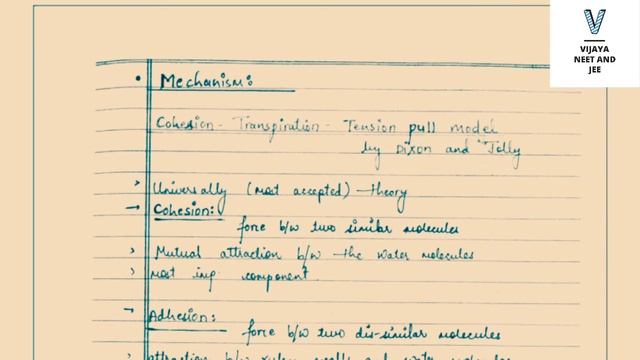 VIJAYA
NEET AND
JEE
• Mechanism:
Cohesion - Transpiration - Tension pull model
by Dixon and Jolly
> Universally (most accepted) theory
→ Cohesion:
force b/w two similar molecules
> Mutual attraction b/w the water molecules
> most imp component.
→ Adhesion:
force b/w two dis-similar molecules
> attraction b/w xylem walls and water molecules